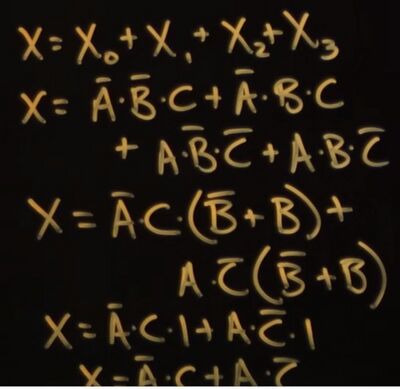 X = X₀ + X₁ + X₂ + X₃
X = A̅·B̅·C + A̅·B·C
+ A·B̅·C̅ + A·B·C̅
X = A̅·C·(B̅ + B) +
A·C̅(B̅ + B)
X = A̅·C·1 + A·C̅·1
X = A̅·C + A·C̅